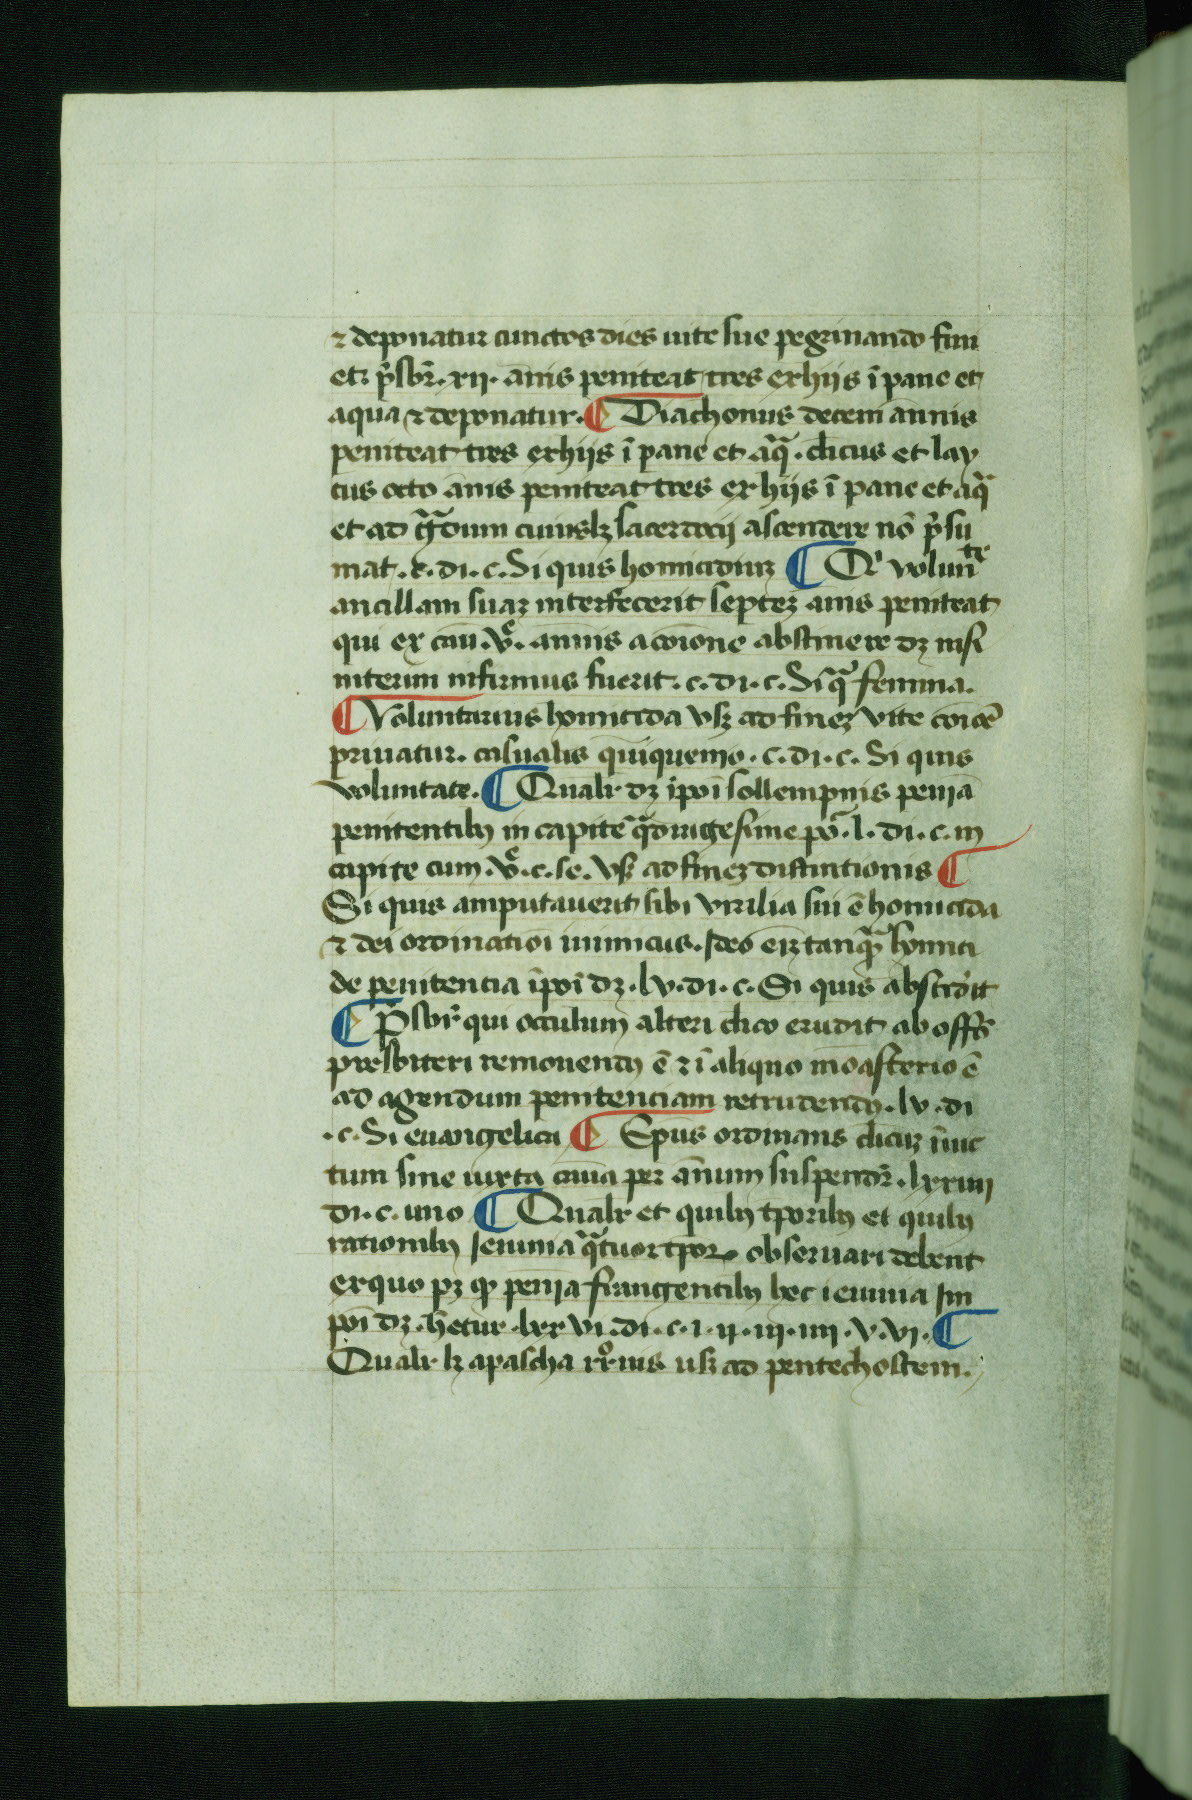 ⁊ deponatur cunctos dies uite sue pegrinando fini
et. p̃sbr̃. xij. ãnis peniteat tres exhijs ĩ pane et
aqua ⁊ deponatur. ¶ Diachonus decem annis
peniteat tres exhijs ĩ pane et aq̃. cl̃icus et lay
cus octo ãnis peniteat tres ex hijs ĩ pane et aq̃
et ad g̃dum cuiuslꝫ sacerdocij ascendere nõ p̃su
mat. di. c. Si quis homicidiuꝫ ¶ Qͥ volunᵗᵉ
ancillam suaꝫ interfecerit septeꝫ ãnis peniteat
qui ex cau. v̊. annis acõione abstinere dꝫ nisi
interim infirmus fuerit. e. di. c. Si q̃ femina.
¶ Voluntarius homicida vsqꝫ ad fineꝫ vite cõiõe
priuatur. casualis quinquenio. e. di. c. Si quis
voluntate. ¶ Qualr̃ dꝫ ĩpoĩ sollempnis penĩa
penitentibꝰ in capite q̃dragesime po. l. di. c. in
capite cum. v̊. c. se. vsqꝫ ad fineꝫ distinctionis ¶
Si quis amputauerit sibi virilia sui ẽ homicida
⁊ dei ordinatioĩ inimicus. Ideo eiꝫ tanq̃ homici
de penitencia ĩpoĩ dꝫ. lv. di. c. Si quis abscid̃it
¶ P̃sbr̃ qui occulum alteri cl̃ico erudit ab offõ
presbiteri remouendꝰ ẽ ⁊ ĩ aliquo moasterio ẽ
ad agendum penitenciam retrudendꝰ. lv. di
. c. Si euangelica ¶ Ep̃us ordinans cl̃icuꝫ ĩuic
tum sine iuxta cauã per ãnum suspendr̃. lxxiiij
di. c. uno ¶ Qualr̃ et quibꝰ tp̃oribꝰ et quibꝰ
rationibꝰ Ieiunia q̃tuor tp̃oꝝ obseruari debent
exquo pꝫ qꝙ penĩa frangentibꝰ hec ieiunia Im
poĩ dꝫ. hẽtur. lxx vi. di. c. i. ij. iij. iiij. v. vj. ¶
Qualr̃ lꝫ apascha usqꝫ ad pentechostem.